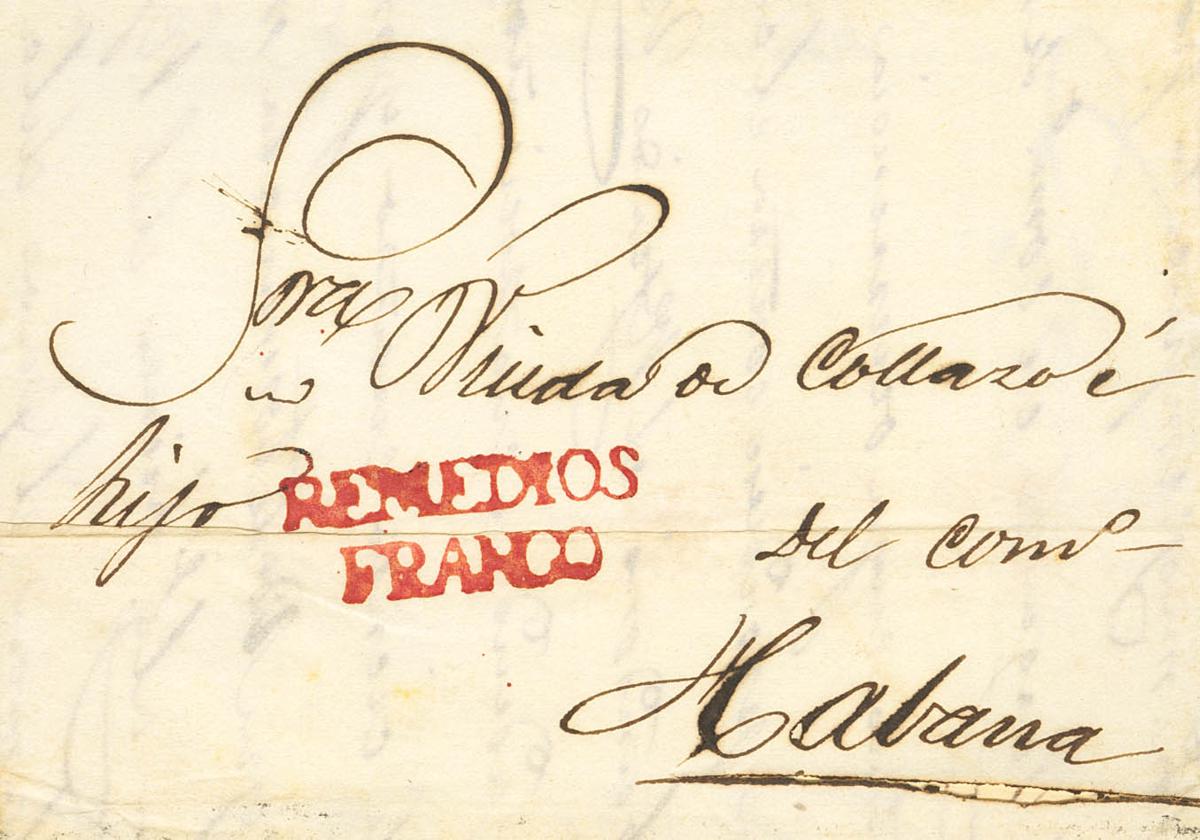 Sra Viuda de Collazo é
hijo
REMEDIOS
FRANCO
del com°
Habana